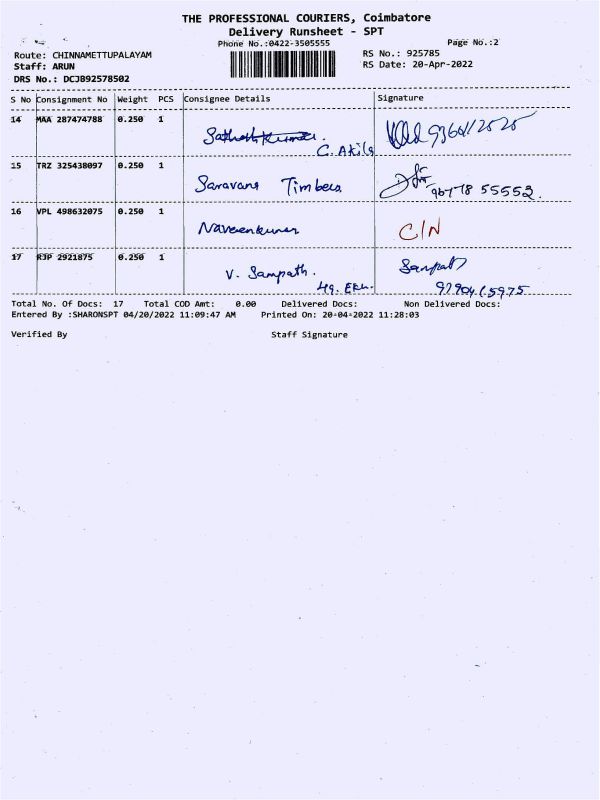 THE PROFESSIONAL COURIERS, Coimbatore
Delivery Runsheet - SPT
Phone No.:0422-3505555 Page No.:2
Route: CHINNAMETTUPALAYAM RS No.: 925785
Staff: ARUN RS Date: 20-Apr-2022
DRS No.: DCJB92578502
S No Consignment No Weight PCS Consignee Details Signature
14 MAA 287474788 0.250 1
C. Akila
15 TRZ 325438097 0.250 1
Saravana Timbers 96778 55552.
16 VPL 498632075 0.250 1
Naveenkumar C/N
17 RJP 2921875 0.250 1
V. Sampath. Sampath
Total No. Of Docs: 17 Total COD Amt: 0.00 Delivered Docs: Non Delivered Docs:
Entered By :SHARONSPT 04/20/2022 11:09:47 AM Printed On: 20-04-2022 11:28:03
Verified By Staff Signature